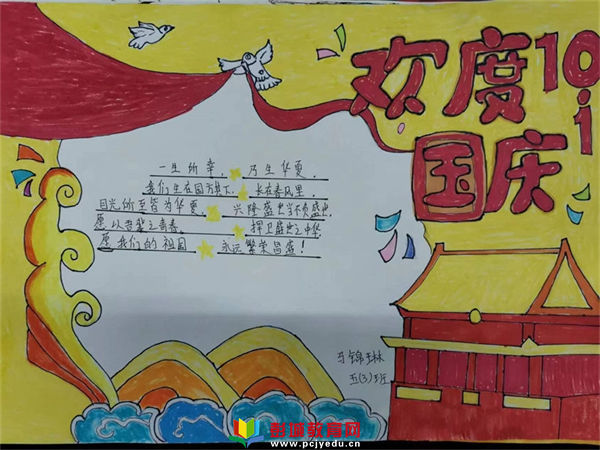 欢度 10.1
国庆
一生所幸 乃生华夏.
我们生在国旗下. 长在春风里.
目光所至皆为华夏. 兴隆盛世当不负盛世.
愿以吾辈之青春. 捍卫盛世之中华.
愿我们的祖国 永远繁荣昌盛!
马锦琳
五(3)班
彭城教育网
www.pcjyedu.cn